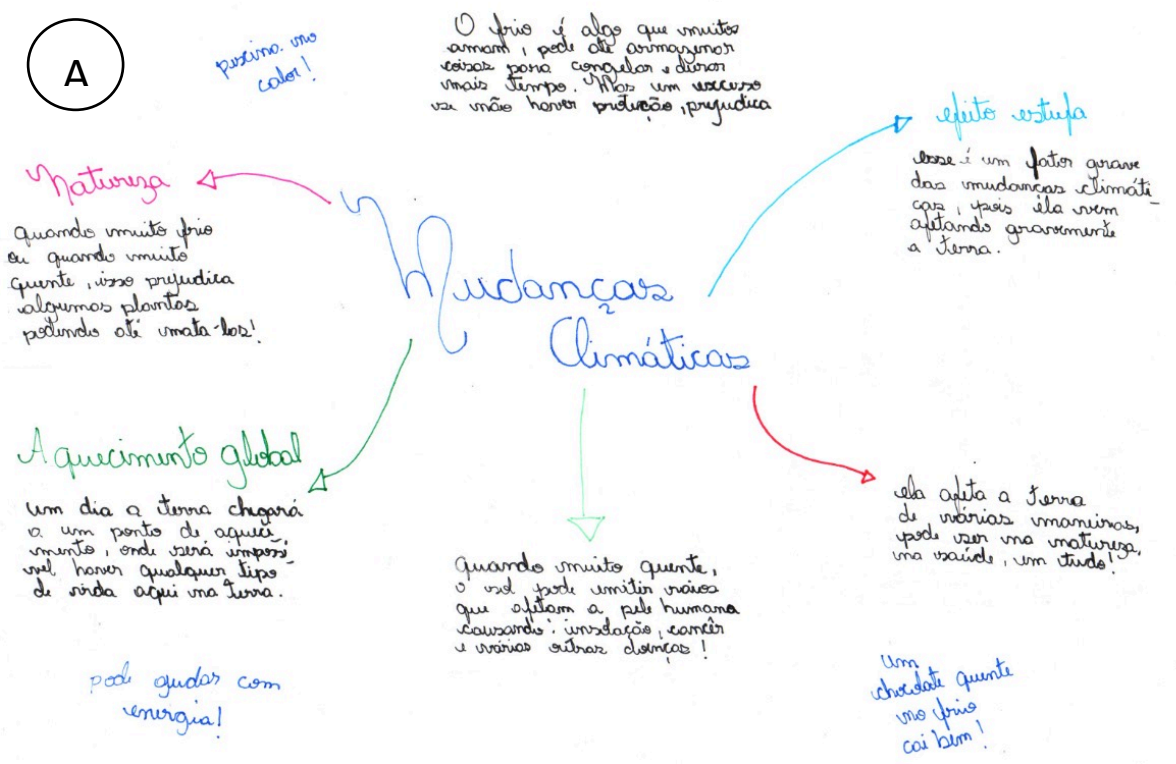 A
piscina no
calor!
O frio é algo que muitos
amam, pode até armazenar
coisas para congelar e durar
mais tempo. Mas um excesso
se não haver proteção, prejudica
efeito estufa
esse é um fator grave
das mudanças climáti-
cas, pois ela vem
afetando gravemente
a terra.
Natureza
quando muito frio
ou quando muito
quente, isso prejudica
algumas plantas
podendo até mata-las!
Mudanças
Climáticas
Aquecimento global
um dia a terra chegará
a um ponto de aqueci-
mento, onde será impossi-
vel haver qualquer tipo
de vida aqui na terra.
Quando muito quente,
o sol pode emitir raios
que afetam a pele humana
causando: insolação, cancêr
e várias outras doenças!
ela afeta a terra
de várias maneiras,
pode ser na natureza,
na saúde, em tudo!
pode ajudar com
energia!
um
chocolate quente
no frio
cai bem!